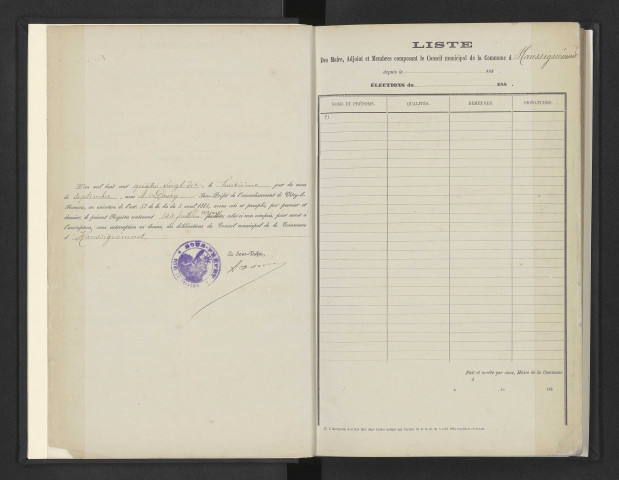 L'an mil huit cent quatre vingt dix, le huitième jour du mois
de Septembre, nous, Sous-Préfet de l'arrondissement de Vitry-le-
François, en exécution de l'art. 57 de la loi du 5 avril 1884, avons coté et paraphé, par premier et
dernier, le présent Registre contenant feuillets, celui-ci non compris, pour servir à
l'inscription, sans interruption ni lacune, des délibérations du Conseil municipal de la Commune
d' Haussignémont.
Le Sous-Préfet,
SOUS-PRÉFET
LISTE
Des Maire, Adjoint et Membres composant le Conseil municipal de la Commune d Haussignémont
depuis le 188
ÉLECTIONS du 188 .
NOMS ET PRÉNOMS. QUALITÉS. DEMEURES. SIGNATURES.
(1)
Fait et arrêté par nous, Maire de la Commune
d
A , le 188 .